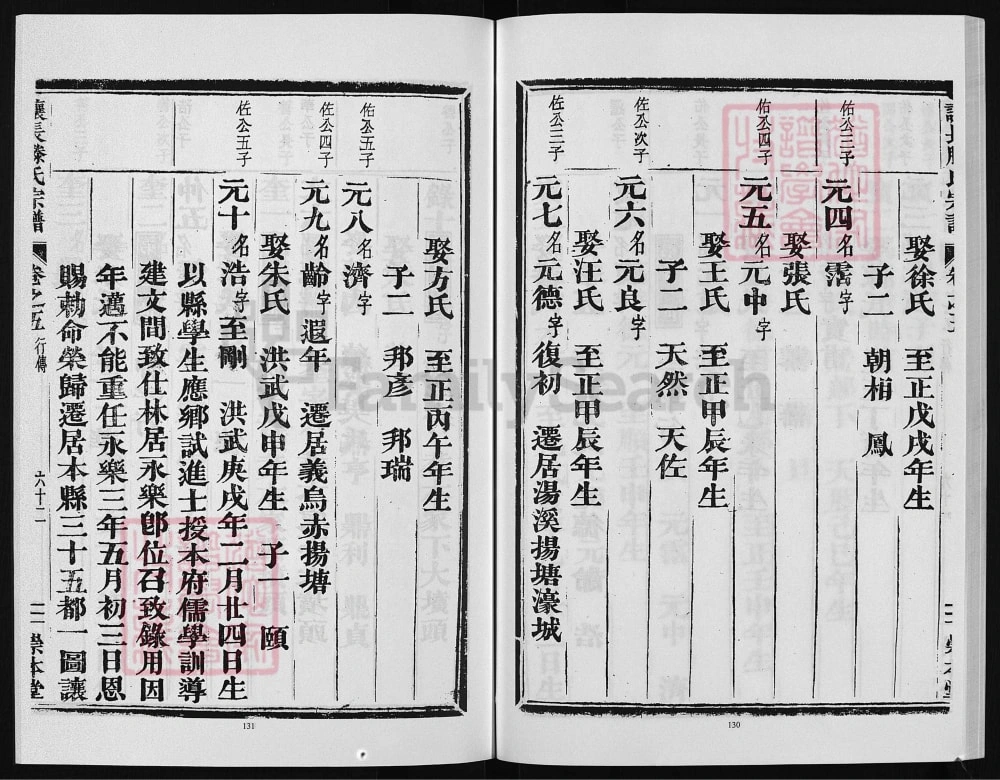 娶徐氏 至正戊戌年生
子二 朝栯 鳳
佑公三子
元四名霱字
娶張氏
佑公四子
元五名元中字
娶王氏 至正甲辰年生
子二 天然 天佐
佐公次子
元六名元良字
娶汪氏 至正甲辰年生
佐公三子
元七名元德字復初 遷居湯溪揚塘濠城
130
娶方氏 至正丙午年生
子二 邦彥 邦瑞
佑公五子
元八名濟字
佐公四子
元九名齡字遐年 遷居義烏赤揚塘
娶朱氏 洪武戊申年生 子一 頤
佐公五子
元十名浩字至剛 洪武庚戌年二月廿四日生
以縣學生應鄉試進士授本府儒學訓導
建文間致仕林居永樂卽位召致錄用因
年邁不能重任永樂三年五月初三日恩
賜勅命榮歸遷居本縣三十五都一圖讓
讓長滕氏宗譜 卷之五 行傳 六十二 崇本堂
131
FamilySearch